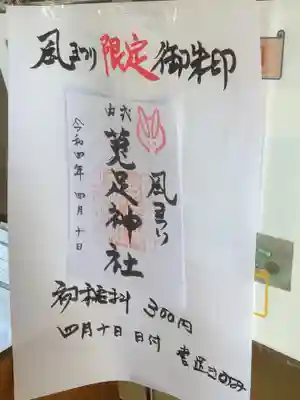 風まつり限定御朱印
風まつり
菟足神社
令和四年 四月 十日
初穂料 300円
四月十日 日付 書置きのみ